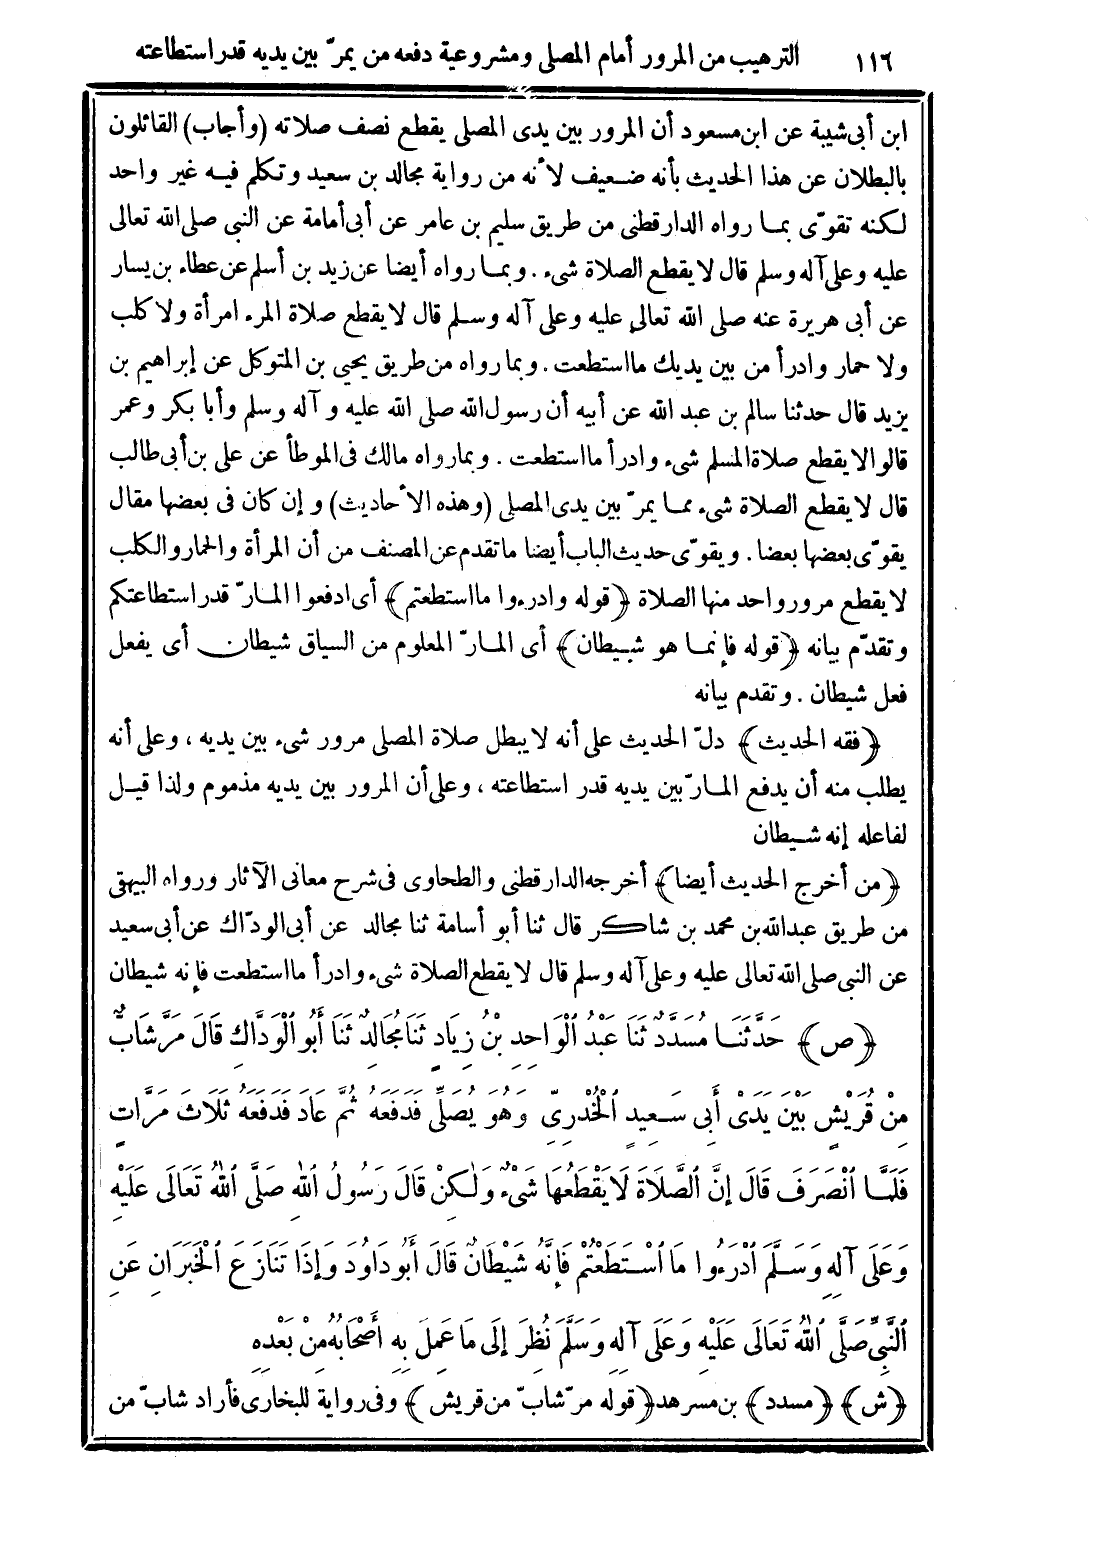 ١١٦ الترهيب من المرور أمام المصلى ومشروعية دفعه من يمرّ بين يديه قدر استطاعته
ابن أبى شيبة عن ابن مسعود أن المرور بين يدى المصلى يقطع نصف صلاته (وأجاب) القائلون
بالبطلان عن هذا الحديث بأنه ضعيف لأنه من رواية مجالد بن سعيد وتكلم فيه غير واحد
لكنه تقوّى بما رواه الدارقطنى من طريق سليم بن عامر عن أبى أمامة عن النبى صلى الله تعالى
عليه وعلى آله وسلم قال لا يقطع الصلاة شىء . وبما رواه أيضا عن زيد بن أسلم عن عطاء بن يسار
عن أبى هريرة عنه صلى الله تعالى عليه وعلى آله وسلم قال لا يقطع صلاة المرء امرأة ولا كلب
ولا حمار وادرأ من بين يديك ما استطعت . وبما رواه من طريق يحيى بن المتوكل عن إبراهيم بن
يزيد قال حدثنا سالم بن عبد الله عن أبيه أن رسول الله صلى الله عليه وآله وسلم وأبا بكر وعمر
قالوا لا يقطع صلاة المسلم شىء وادرأ ما استطعت . وبما رواه مالك فى الموطأ عن على بن أبى طالب
قال لا يقطع الصلاة شىء مما يمرّ بين يدى المصلى (وهذه الأحاديث) وإن كان فى بعضها مقال
يقوّى بعضها بعضا . ويقوّى حديث الباب أيضا ما تقدم عن المصنف من أن المرأة والحمار والكلب
لا يقطع مرور واحد منها الصلاة ﴿قوله وادرءوا ما استطعتم﴾ أى ادفعوا المارّ قدر استطاعتكم
وتقدّم بيانه ﴿قوله فإنما هو شيطان﴾ أى المارّ المعلوم من السياق شيطان أى يفعل
فعل شيطان . وتقدم بيانه
﴿فقه الحديث﴾ دلّ الحديث على أنه لا يبطل صلاة المصلى مرور شىء بين يديه ، وعلى أنه
يطلب منه أن يدفع المارّ بين يديه قدر استطاعته ، وعلى أن المرور بين يديه مذموم ولذا قيل
لفاعله إنه شيطان
﴿من أخرج الحديث أيضا﴾ أخرجه الدارقطنى والطحاوى فى شرح معانى الآثار ورواه البيهقى
من طريق عبد الله بن محمد بن شاكر قال ثنا أبو أسامة ثنا مجالد عن أبى الودّاك عن أبى سعيد
عن النبى صلى الله تعالى عليه وعلى آله وسلم قال لا يقطع الصلاة شىء وادرأ ما استطعت فإنه شيطان
﴿ص﴾ حَدَّثَنَا مُسَدَّدٌ ثَنَا عَبْدُ ٱلْوَاحِدِ بْنُ زِيَادٍ ثَنَا مُجَالِدٌ ثَنَا أَبُو ٱلْوَدَّاكِ قَالَ مَرَّ شَابٌّ
مِنْ قُرَيْشٍ بَيْنَ يَدَىْ أَبِى سَعِيدٍ ٱلْخُدْرِىِّ وَهُوَ يُصَلِّى فَدَفَعَهُ ثُمَّ عَادَ فَدَفَعَهُ ثَلَاثَ مَرَّاتٍ
فَلَمَّا ٱنْصَرَفَ قَالَ إِنَّ ٱلصَّلَاةَ لَا يَقْطَعُهَا شَىْءٌ وَلٰكِنْ قَالَ رَسُولُ ٱللهِ صَلَّى ٱللهُ تَعَالَى عَلَيْهِ
وَعَلَى آلِهِ وَسَلَّمَ ٱدْرَءُوا مَا ٱسْتَطَعْتُمْ فَإِنَّهُ شَيْطَانٌ قَالَ أَبُو دَاوُدَ وَإِذَا تَنَازَعَ ٱلْخَبَرَانِ عَنِ
ٱلنَّبِىِّ صَلَّى ٱللهُ تَعَالَى عَلَيْهِ وَعَلَى آلِهِ وَسَلَّمَ نُظِرَ إِلَى مَا عَمِلَ بِهِ أَصْحَابُهُ مِنْ بَعْدِهِ
﴿ش﴾ ﴿مسدد﴾ بن مسرهد ﴿قوله مرّ شابّ من قريش﴾ وفى رواية للبخارى فأراد شابّ من